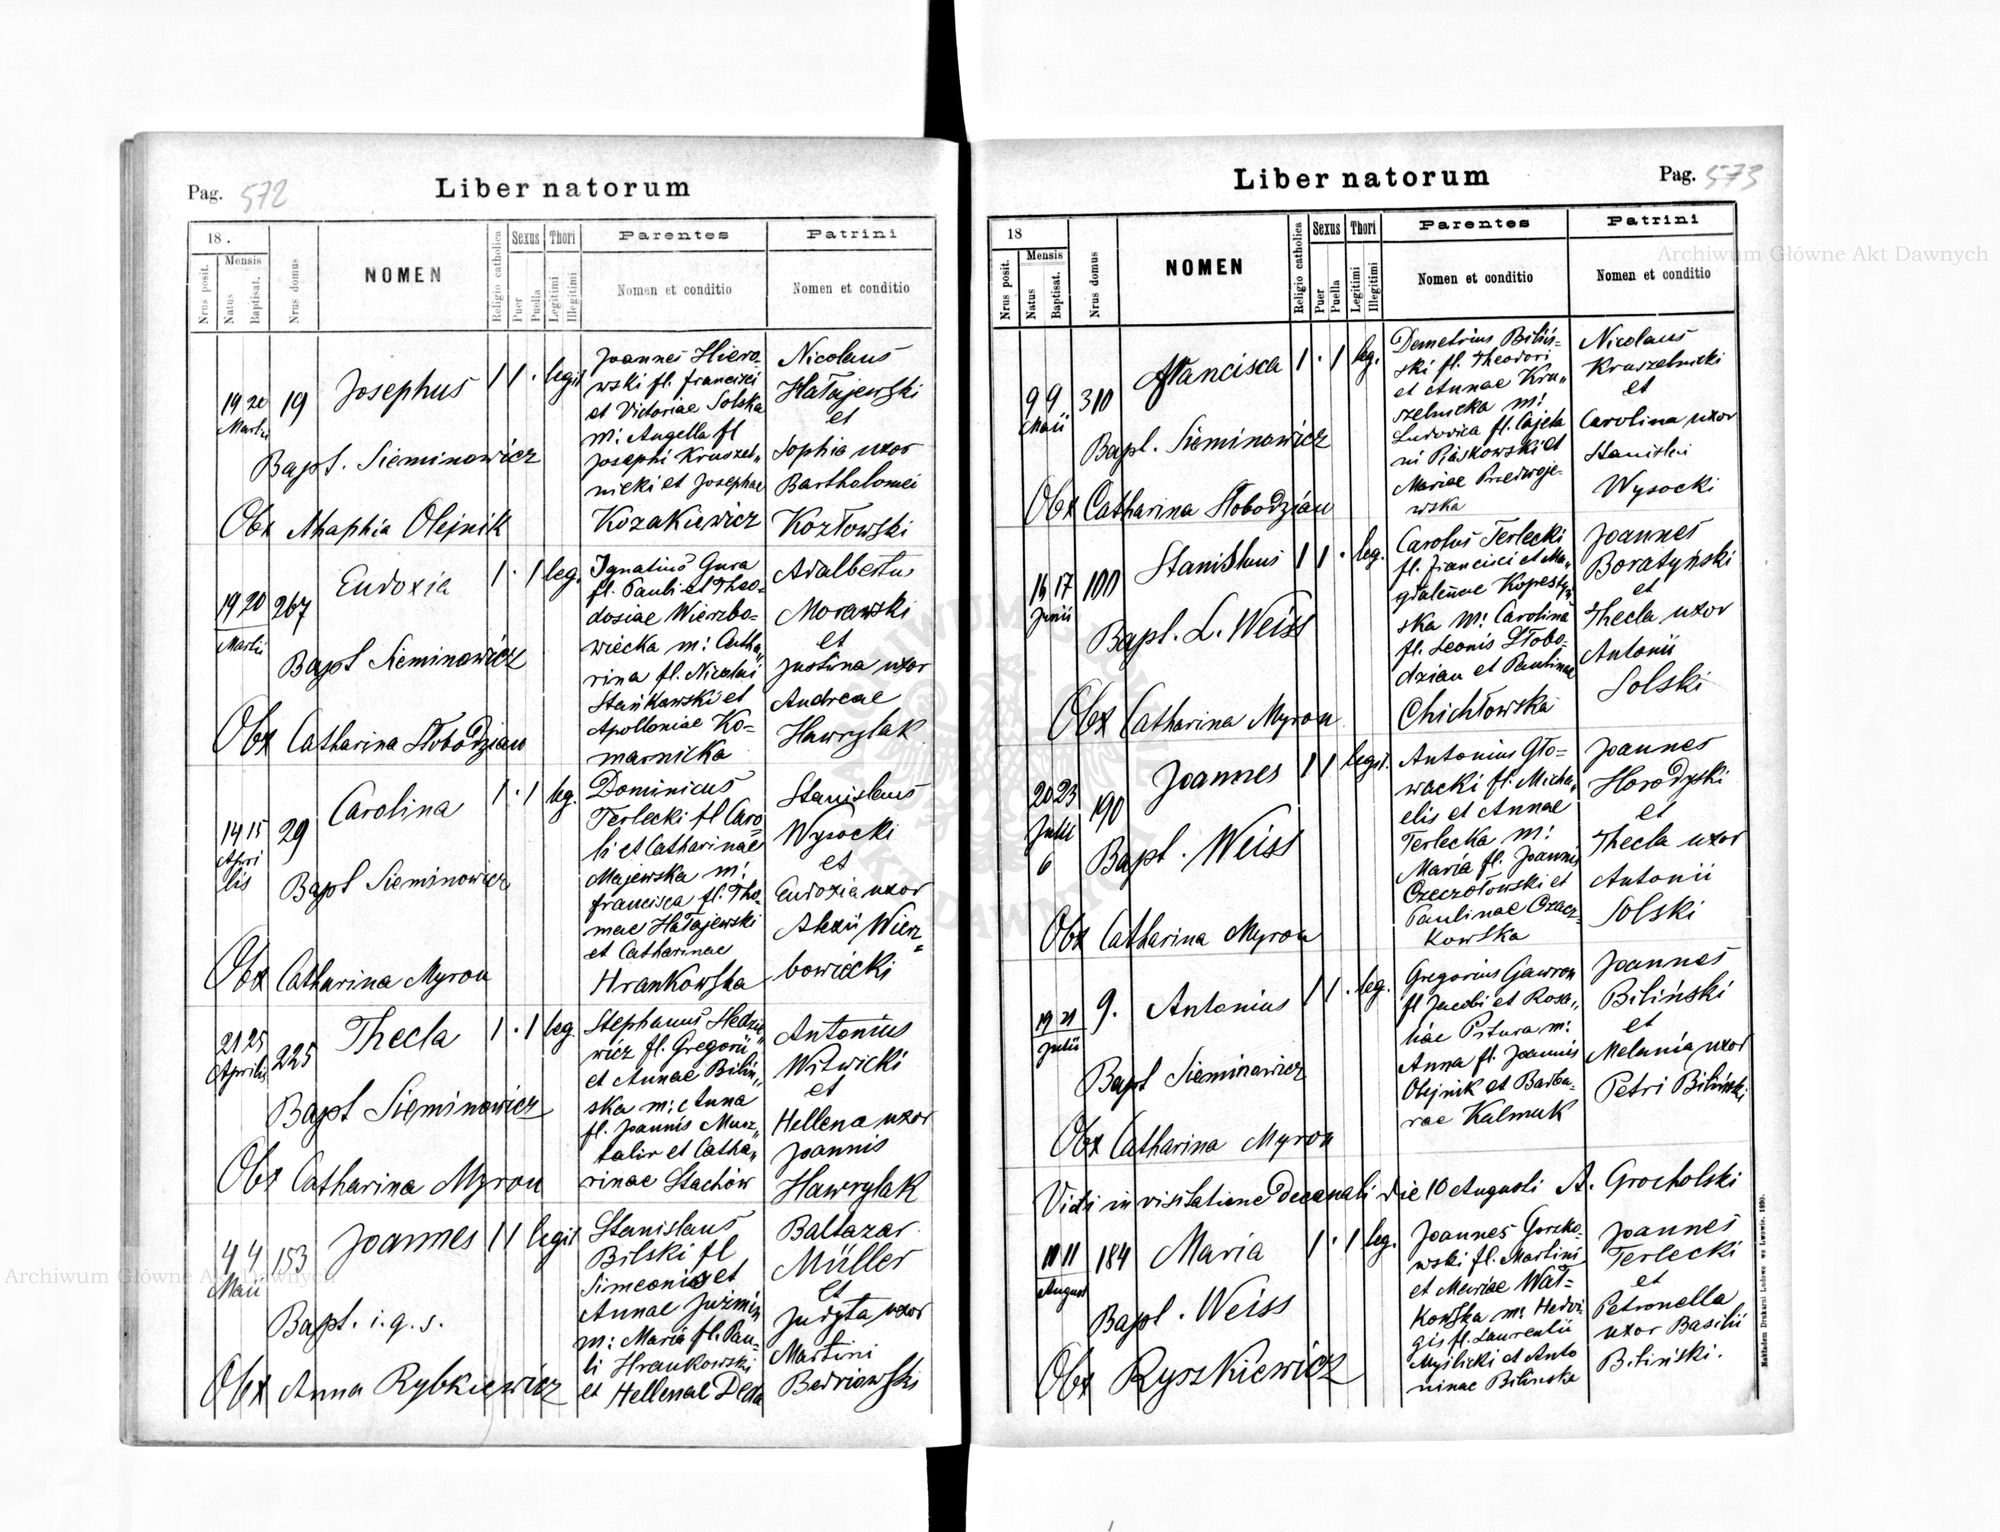 Pag. 572
Liber natorum
18 .
Nrus posit.
Mensis
Natus
Baptisat.
Nrus domus
NOMEN
Religio catholica
Sexus
Puer
Puella
Thori
Legitimi
Illegitimi
Parentes
Nomen et conditio
Patrini
Nomen et conditio
19 20 Martii
19
Josephus
1 1 . legit
Bapt. Sieminowicz
Obx Ahaphia Olejnik
Joannes Hiero-
wski fl. francisci
et Victoriae Solska
m: Angella fl
Josephi Kruszel„
nicki et Josephae
Kozakiewicz
Nicolaus
Hałajewski
et
Sophia uxor
Bartholomei
Kozłowski
19 20 Martii
267
Eudoxia
1 . 1 leg.
Bapt Sieminowicz
Obx Catharina Słobodzian
Ignatius Gura
fl. Pauli et Theo-
dosiae Wierzbo-
wiecka m: Catha„
rina fl. Nicolai
Stańkowski et
Apolloniae Ko-
marnicka
Adalbertus
Morawski
et
Justina uxor
Andreae
Hawrylak
14 15 Apri
lis
29
Carolina
1 . 1 leg.
Bapt Sieminowicz
Obx Catharina Myron
Dominicus
Terlecki fl Caro-
li et Catharinae
Majewska m:
francisca fl. Tho-
mae Hałajewski
et Catharinae
Hrankowska
Stanislaus
Wysocki
et
Eudoxia uxor
Alexii Wierz-
bowiecki
21 25 Aprilis
225
Thecla
1 . 1 leg.
Bapt Sieminowicz
Obx Catharina Myron
Stephanus Hedzie„
wicz fl. Gregorii
et Annae Bilin„
ska m: Anna
fl. Joannis Musz„
talir et Catha„
rinae Stachów
Antonius
Witwicki
et
Hellena uxor
Joannis
Hawrylak
4 4 Maii
153
Joannes
1 1 legit
Bapt. i.q.s.
Obx Anna Rybkiewicz
Stanislaus
Bilski fl
Simeonis et
Annae Juźmin
m: Maria fl. Pau-
li Hrankowski
et Hellenae Deda
Baltazar
Müller
et
Judyta uxor
Martini
Bedriowski
Pag. 573
Liber natorum
18
Nrus posit.
Mensis
Natus
Baptisat.
Nrus domus
NOMEN
Religio catholica
Sexus
Puer
Puella
Thori
Legitimi
Illegitimi
Parentes
Nomen et conditio
Patrini
Nomen et conditio
9 9 Maii
310
Francisca
1 . 1 leg.
Bapt. Sieminowicz
Obx Catharina Słobodzian
Demetrius Biliń-
ski fl. Theodori
et Annae Kru„
szelnicka m:
Ludovica fl. Cajeta
ni Piaskowski et
Mariae Przedwoje-
wska
Nicolaus
Kruszelnicki
et
Carolina uxor
Stanislai
Wysocki
17
Junii
100
Stanislaus
1 1 . leg.
Bapt. L. Weiss
Obx Catharina Myron
Carolus Terlecki
fl. Francisci et Ma„
gdalenae Kopestyń
ska m: Carolina
fl. Leonis Słobo-
dzian et Paulinae
Chichłowska
Joannes
Boratyński
et
Thecla uxor
Antonii
Solski
20 23
Julii
6
190
Joannes
1 1 legit.
Bapt. Weiss
Obx Catharina Myron
Antonius Gło-
wacki fl. Micha„
elis et Annae
Terlecka m:
Maria fl. Joannis
Czeczołowski et
Paulinae Czacz-
kowska
Joannes
Horodyski
et
Thecla uxor
Antonii
Solski
19 21
Julii
9.
Antonius
1 1 . leg.
Bapt Sieminowicz
Obx Catharina Myron
Gregorius Gawron
fl Jacobi et Rosa„
liae Pitura m:
Anna fl. Joannis
Olejnik et Barba-
rae Kalmuk
Joannes
Biliński
et
Melania uxor
Petri Biliński
Vidi in visitatione decanali die 10 Augusti A. Grocholski
11 11
August
184
Maria
1 . 1 leg.
Bapt. Weiss
Obx Ryszkiewicz
Joannes Gorzko-
wski fl. Martini
et Mariae Wał-
kowska m: Hedvi-
gis fl. Laurentii
Myślicki et Anto
ninae Bilinska
Joannes
Terlecki
et
Petronella
uxor Basilii
Biliński.
Nakładem Drukarni Ludowe we Lwowie. 1890.
Archiwum Główne Akt Dawnych
Archiwum Główne Akt Dawnych